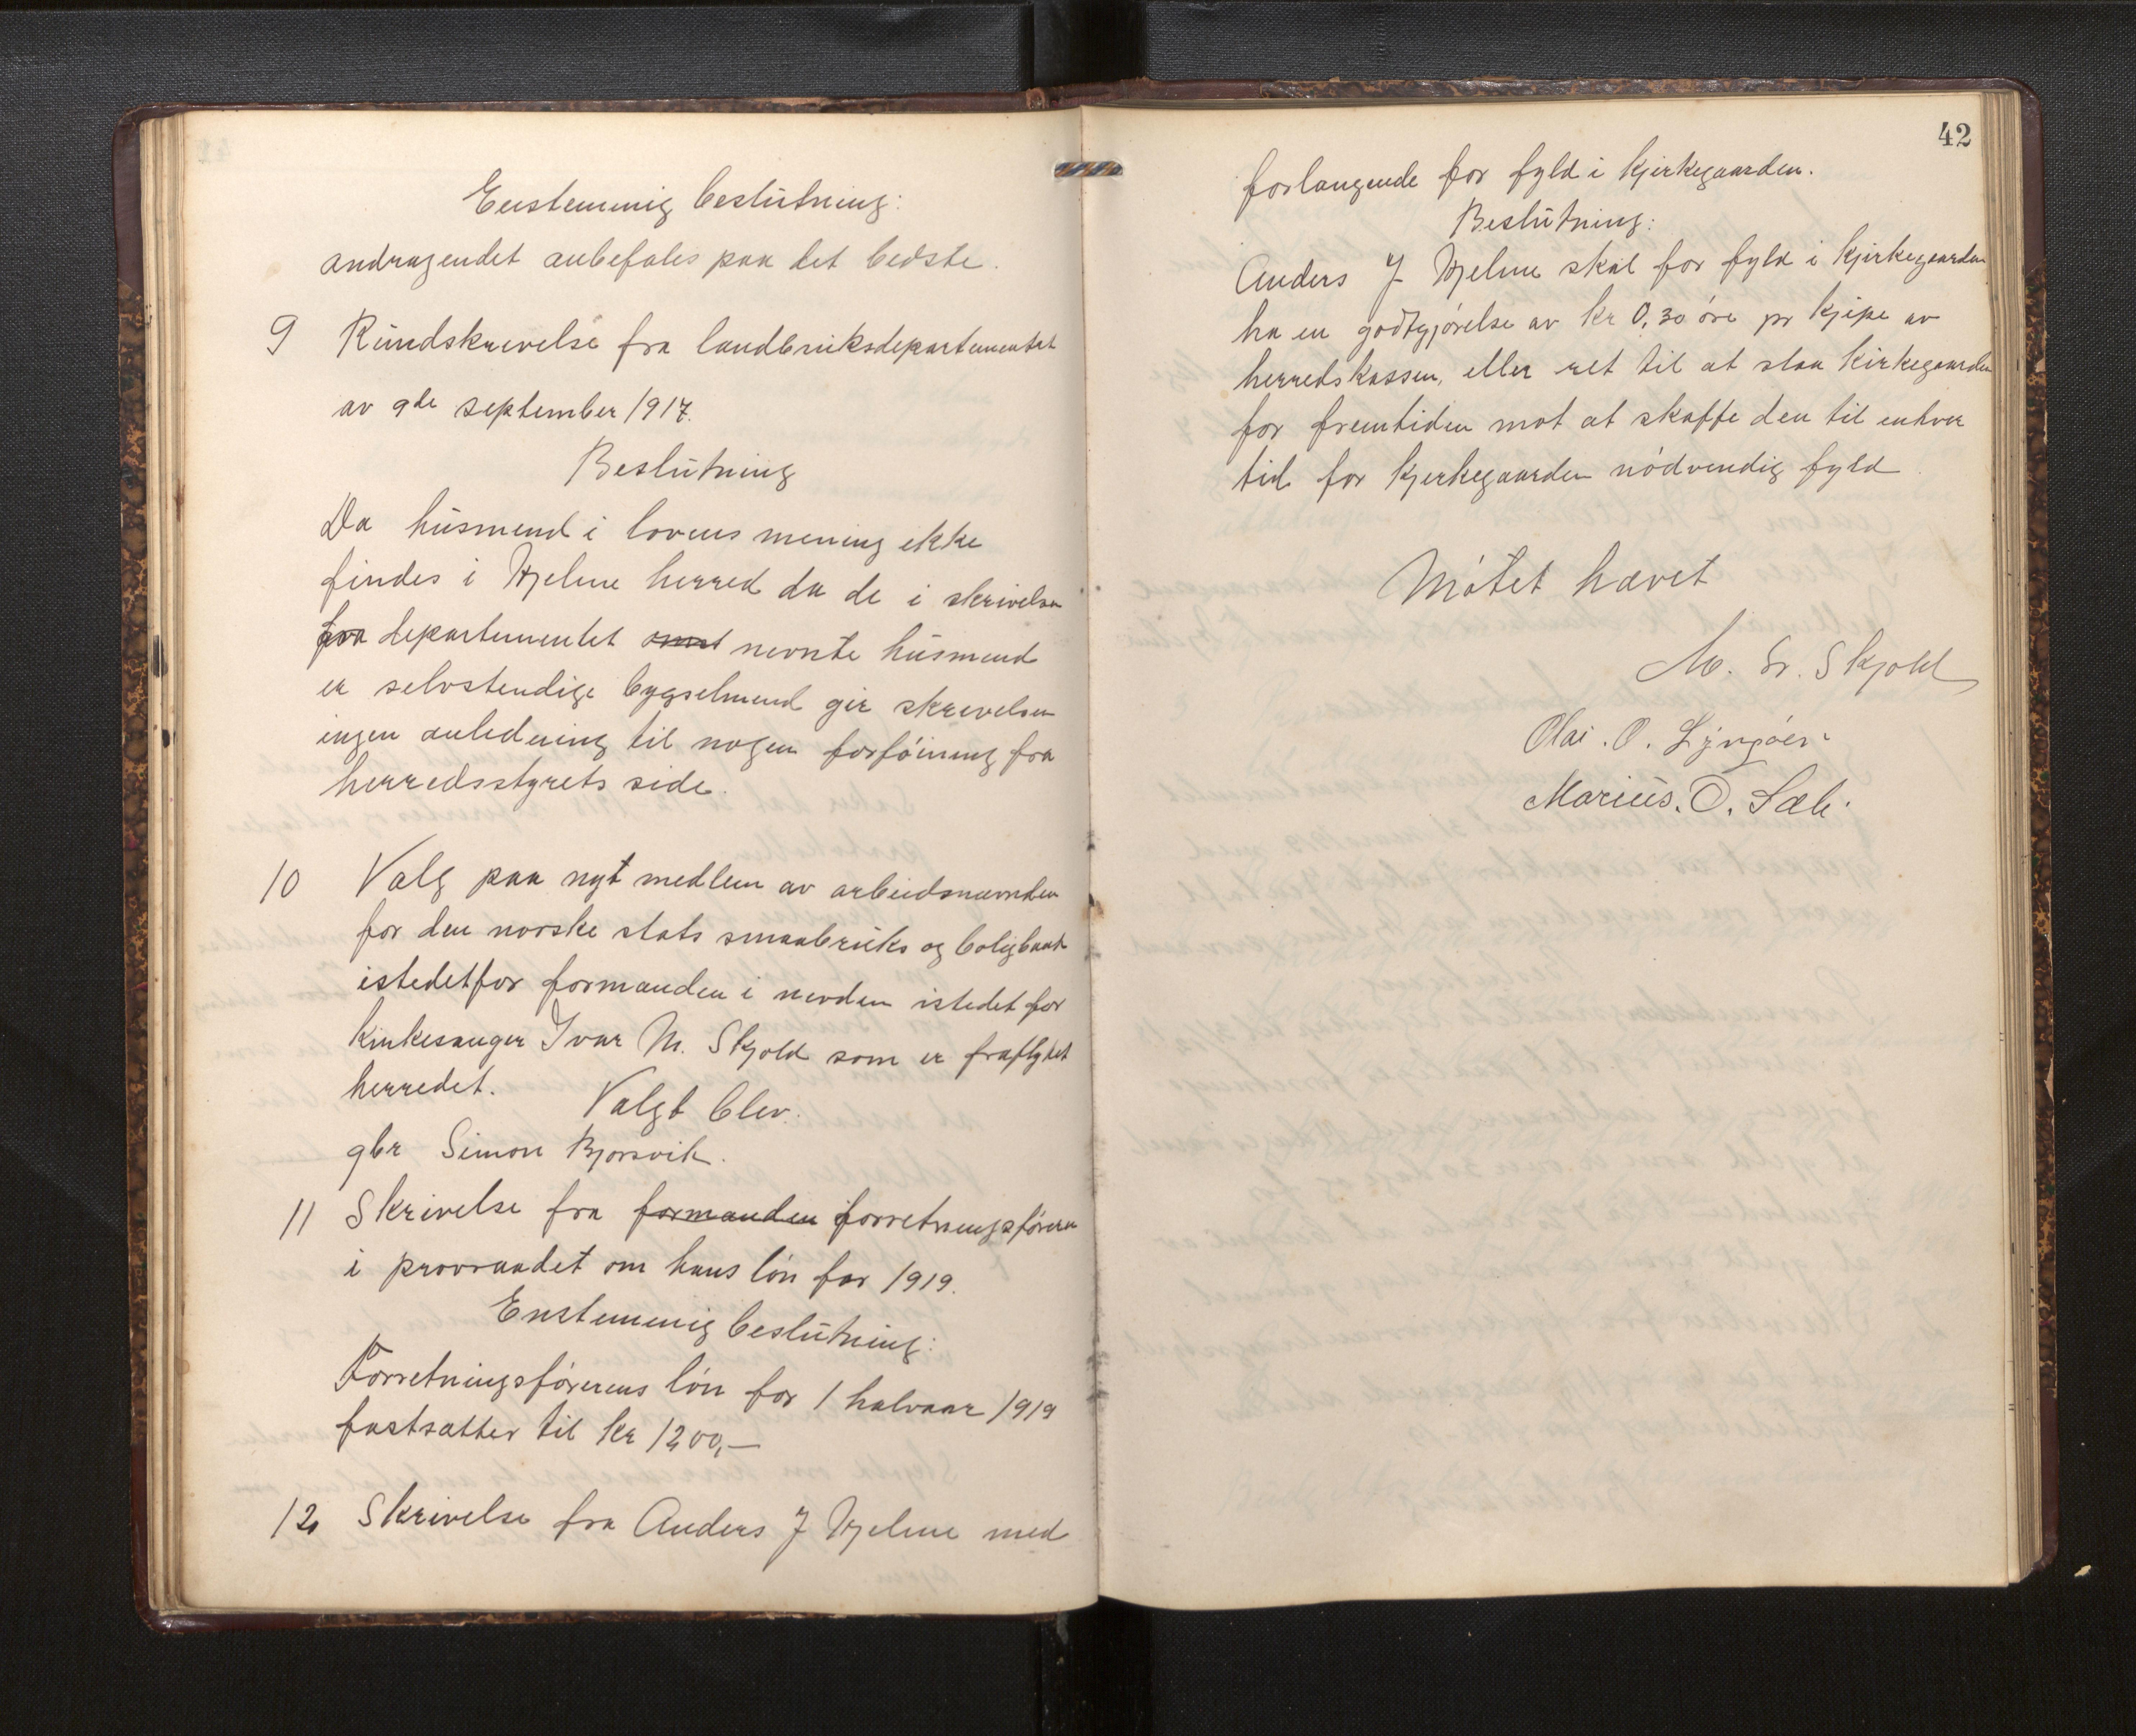 Enstemmig beslutning:
andragendet anbefales paa det bedste.
9 Rundskrivelse fra landbruksdepartementet
av 9de september 1917.
Beslutning
Da husmend i lovens mening ikke
findes i Hjelme herred da de i skrivelsen
fra departementet omt nevnte husmend
er selvstendige bygselmend gir skrevelsen
ingen anledning til nogen forføining fra
herredsstyrets side.
10 Valg paa nyt medlem av arbeidsnævnden
for den norske stats smaabruks og boligbank
istedetfor formanden i nevden istedet for
Kirkesanger Ivar M. Skjold som er fraflyttet
herredet.
Valgt blev:
gbr Simon Bjorsvik.
11 Skrivelse fra formanden forretningsføreren
i provraadet om hans løn for 1919.
Enstemmig beslutning:
Forretningsførerens løn for 1 halvaar 1919
fastsattes til kr 1200,—
12 Skrivelse fra Anders J Hjelme med
42
forlangende for fyld i Kjirkegaarden.
Beslutning:
Anders J Hjelme skal for fyld i Kjirkegaarden
ha en godtgjørelse av kr 0,30 øre pr kjipe av
herredskassen, eller ret til at slaa Kirkegaarden
for fremtiden mot at skaffe den til enhver
tid for Kjerkegaarden nødvendig fyld
Møtet hævet
M. Skjold
Olai. O. Lyngøer.
Marius. O. Sæle.